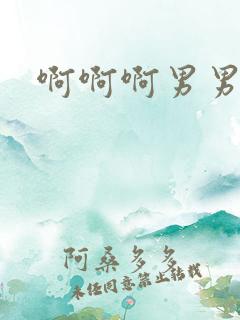 啊啊啊男男
阿桑多多
未经同意禁止转载